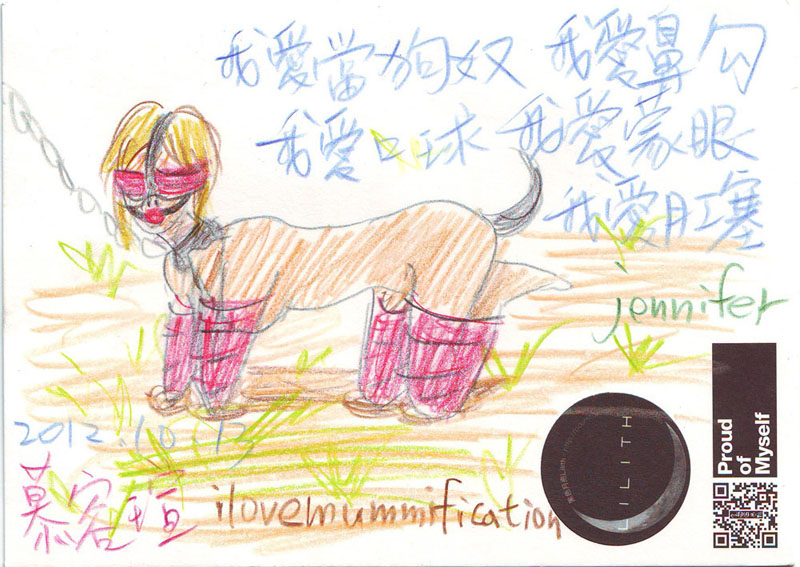 我愛當狗奴 我愛鼻勾
我愛口球 我愛蒙眼
我愛肛塞
jennifer
2012.10.13
慕容垣
ilovemummification
LILITH
Proud
of
Myself